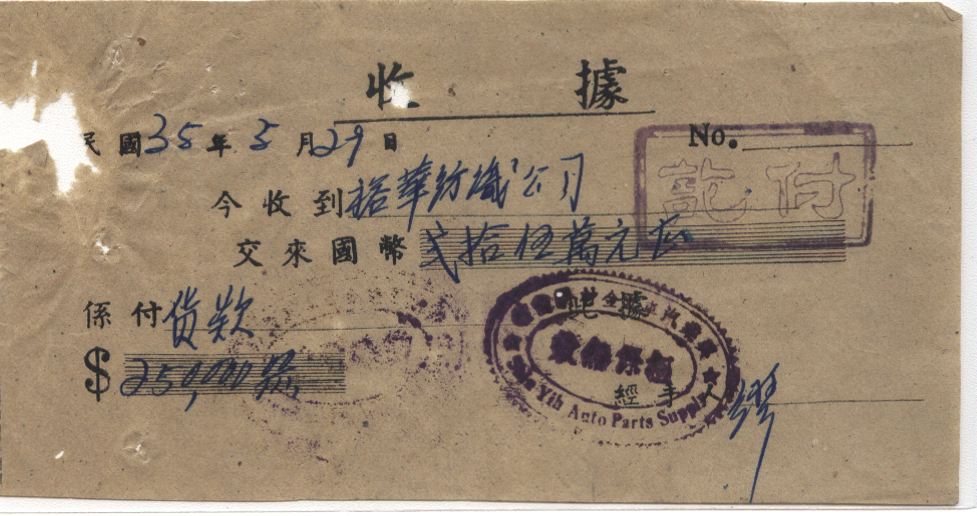 收據
民國35年5月29日
No.
今收到裕華紡織公司
交來國幣貳拾伍萬元正
付訖
係付貨款
此據
$250,000
經手人繆
Yih Auto Parts Supply